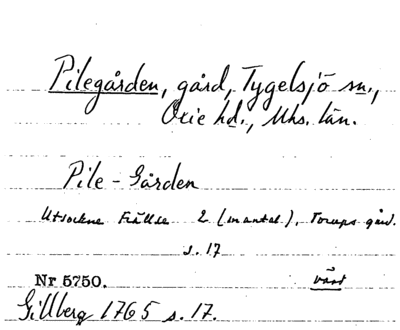 Pilegården, gård, Tygelsjö sn.,
Oxie hd., Mhs. län.
Pile - Gården
Utsockne Frälse 2 (mantal), Torups gård.
s. 17
Nr 5750. väst
Gillberg 1765 s. 17.